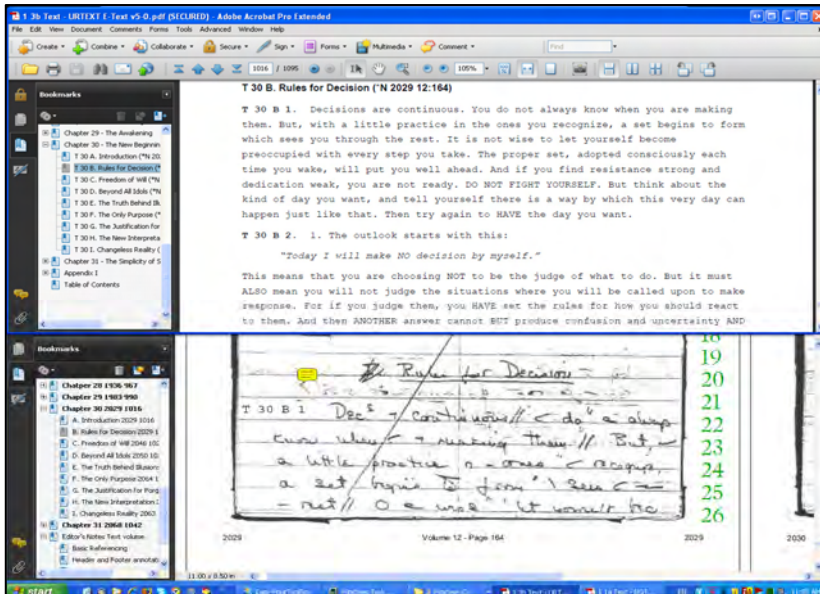 1 3b Text - URTEXT E-Text v5-0.pdf (SECURED) - Adobe Acrobat Pro Extended
File Edit View Document Comments Forms Tools Advanced Window Help
Create Combine Collaborate Secure Sign Forms Multimedia Comment Find
1016 / 1095 105%
Bookmarks
Chapter 29 - The Awakening
Chapter 30 - The New Beginnin
T 30 A. Introduction (*N 20
T 30 B. Rules for Decision (*
T 30 C. Freedom of Will (*N
T 30 D. Beyond All Idols (*N
T 30 E. The Truth Behind Ill
T 30 F. The Only Purpose (*
T 30 G. The Justification for
T 30 H. The New Interpreta
T 30 I. Changeless Reality (
Chapter 31 - The Simplicity of S
Appendix I
Table of Contents
T 30 B. Rules for Decision (*N 2029 12:164)
T 30 B 1. Decisions are continuous. You do not always know when you are making
them. But, with a little practice in the ones you recognize, a set begins to form
which sees you through the rest. It is not wise to let yourself become
preoccupied with every step you take. The proper set, adopted consciously each
time you wake, will put you well ahead. And if you find resistance strong and
dedication weak, you are not ready. DO NOT FIGHT YOURSELF. But think about the
kind of day you want, and tell yourself there is a way by which this very day can
happen just like that. Then try again to HAVE the day you want.
T 30 B 2. 1. The outlook starts with this:
"Today I will make NO decision by myself."
This means that you are choosing NOT to be the judge of what to do. But it must
ALSO mean you will not judge the situations where you will be called upon to make
response. For if you judge them, you HAVE set the rules for how you should react
to them. And then ANOTHER answer cannot BUT produce confusion and uncertainty AND
Bookmarks
Chatper 28 1936-967
Chapter 29 1983-990
Chapter 30 2029 1016
A. Introduction 2029 1016
B. Rules for Decision 2029 1
C. Freedom of Will 2046 102
D. Beyond All Idols 2050 10
E. The Truth Behind Illusions
F. The Only Purpose 2064 1
G. The Justification for Forg
H. The New Interpretation 2
I. Changeless Reality 2063
Chapter 31 2068 1042
Editor's Notes Text volume
Basic Referencing
Header and Footer annotati
18
19
Rules for Decision 20
21
T 30 B 1 continuous do always 22
know when making them But, 23
a little practice ones recog 24
a set begins to form 25
26
2029 Volume 12 - Page 164 2029 2030
11.00 x 8.50 in
start